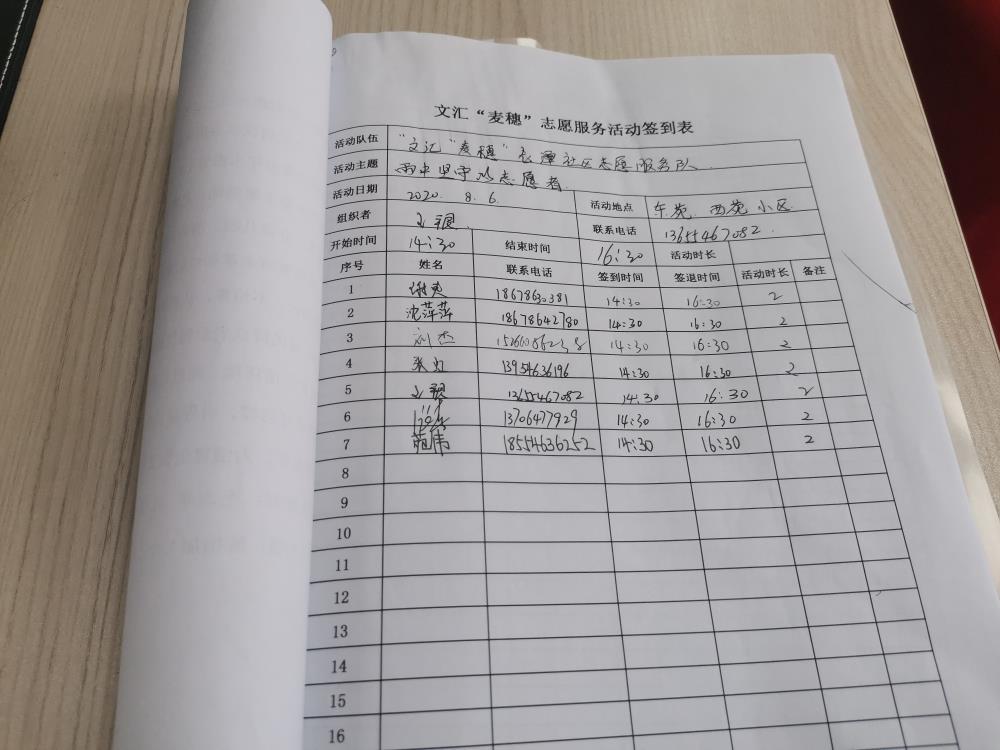 文汇“麦穗”志愿服务活动签到表
活动队伍 “文汇“麦穗”社区志愿服务队
活动主题 雨中坚守志愿者
活动日期 2020. 8. 6. 活动地点 东苑 西苑 小区
组织者 联系电话 13655467082.
开始时间 14:30 结束时间 16:30 活动时长
序号 姓名 联系电话 签到时间 签退时间 活动时长 备注
1 18678630381 14:30 16:30 2
2 沈萍萍 18678642780 14:30 16:30 2
3 刘杰 14:30 16:30 2
4 13954636196 14:30 16:30 2
5 13655467082 14:30 16:30 2
6 13706477929 14:30 16:30 2
7 范伟 18554636252 14:30 16:30 2
8
9
10
11
12
13
14
15
16